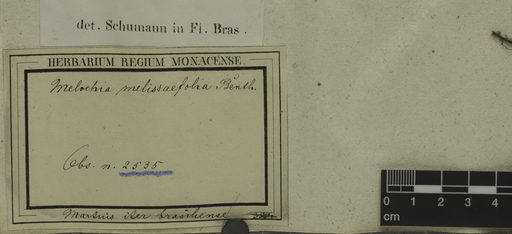 det. Schumann in Fl. Bras.
HERBARIUM REGIUM MONACENSE.
Melochia melissaefolia Benth.
Obs. n. 2535
Martius iter brasiliense
0 1 2 3 4
cm